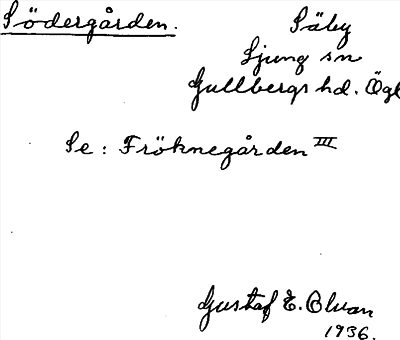 Södergården. Säby
Ljung sn
Gullbergs hd. Ögl
Se: Fröknegården III
Gustaf E. Olvan
1936.